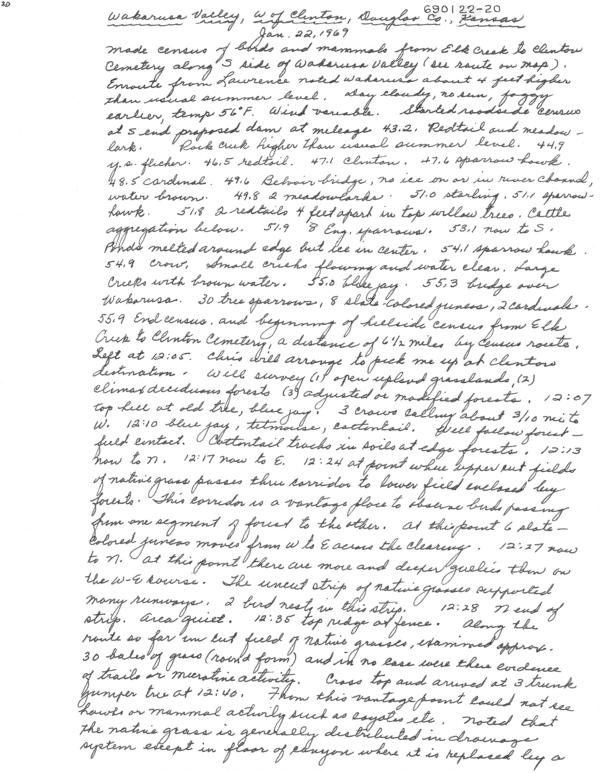 20
690122-20
Wakarusa Valley, W of Clinton, Douglas Co., Kansas
Jan. 22, 1969
Made census of birds and mammals from Elk Creek to Clinton
Cemetery along S side of Wakarusa Valley (see route on map).
Enroute from Lawrence noted Wakarusa about 4 feet higher
than usual summer level. Day cloudy, no sun, foggy
earlier, temp 56°F. Wind variable. Started roadside census
at S end proposed dam at mileage 43.2. Redtail and meadow-
lark. Rock Creek higher than usual summer level. 44.9
y.s. flicker. 46.5 redtail. 47.1 Clinton. 47.6 sparrow hawk.
48.5 cardinal. 49.6 Belvoir bridge, no ice on or in river channel,
water brown. 49.8 2 meadowlarks. 51.0 starling. 51.1 sparrow-
hawk. 51.8 2 redtails 4 feet apart in top willow trees. Cattle
aggregation below. 51.9 8 Eng. sparrows. 53.1 now to S.
Ponds melted around edge but ice in center. 54.1 sparrow hawk.
54.9 crow. Small creeks flowing and water clear. Large
creeks with brown water. 55.0 blue jay. 55.3 bridge over
Wakarusa. 30 tree sparrows, 8 slate-colored juncos, 2 cardinals.
55.9 End census, and beginning of hillside census from Elk
Creek to Clinton Cemetery, a distance of 6 1/2 miles by census route.
Left at 12:05. Chris will arrange to pick me up at Clinton
destination. Will survey (1) open upland grasslands, (2)
climax deciduous forests (3) adjusted or modified forests. 12:07
top hill at old tree, blue jay. 3 crows calling about 3/10 mi to
W. 12:10 blue jay, titmouse, cottontail. Will follow forest-
field contact. Cottontail tracks in soils at edge forests. 12:13
now to N. 12:17 now to E. 12:24 at point where upper cut fields
of native grass passes thru corridor to lower field enclosed by
forests. This corridor is a vantage place to observe birds passing
from one segment of forest to the other. At this point 6 slate-
colored juncos moves from W to E across the clearing. 12:27 now
to N. At this point there are more and deeper gullies than on
the W-E course. The uncut strip of native grasses supported
many runways. 2 bird nests in this strip. 12:28 N end of
strip. Area quiet. 12:35 top ridge at fence. Along the
route so far in cut field of native grasses, examined approx.
30 bales of grass (round form) and in no case were there evidence
of trails or microtine activity. Cross top and arrived at 3 trunk
juniper tree at 12:40. From this vantage point could not see
hawks or mammal activity such as coyotes etc. Noted that
the native grass is generally distributed in drainage
system except in floor of canyon where it is replaced by a